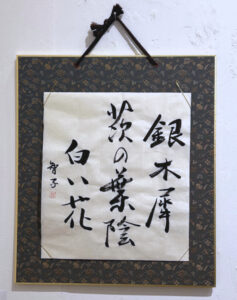 銀木犀
茨の葉陰
白い花
智子